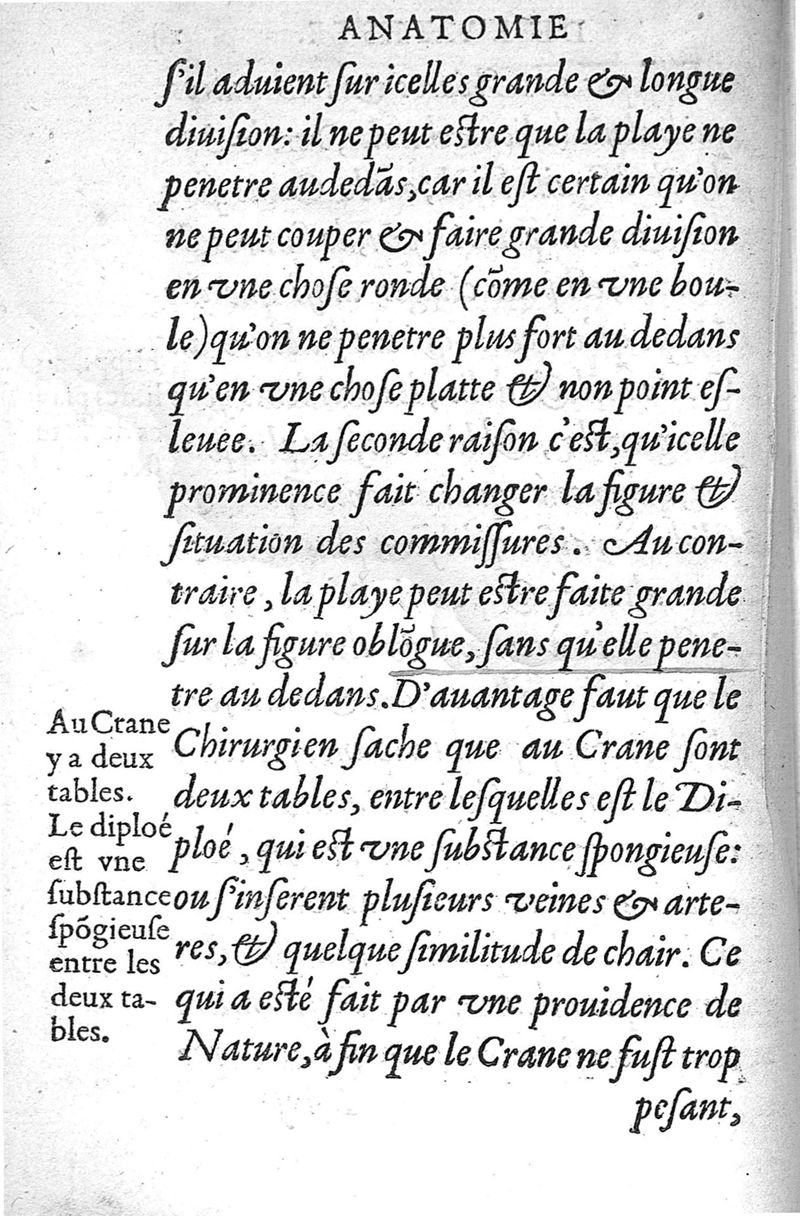 ANATOMIE
ſ'il aduient ſur icelles grande & longue
diuiſion: il ne peut eſtre que la playe ne
penetre audedãs, car il eſt certain qu'on
ne peut couper & faire grande diuiſion
en vne choſe ronde (cõme en vne bou-
le) qu'on ne penetre plus fort au dedans
qu'en vne choſe platte & non point eſ-
leuee. La ſeconde raiſon c'eſt, qu'icelle
prominence fait changer la figure &
ſituation des commiſſures. Au con-
traire, la playe peut eſtre faite grande
ſur la figure oblõgue, ſans qu'elle pene-
tre au dedans. D'auantage faut que le
Chirurgien ſache que au Crane ſont
deux tables, entre leſquelles eſt le Di-
ploé, qui eſt vne ſubſtance ſpongieuſe:
ou ſ'inſerent pluſieurs veines & arte-
res, & quelque ſimilitude de chair. Ce
qui a eſté fait par vne prouidence de
Nature, à fin que le Crane ne fuſt trop
peſant,
Au Crane
y a deux
tables.
Le diploé
eſt vne
ſubſtance
ſpõgieuſe
entre les
deux ta-
bles.